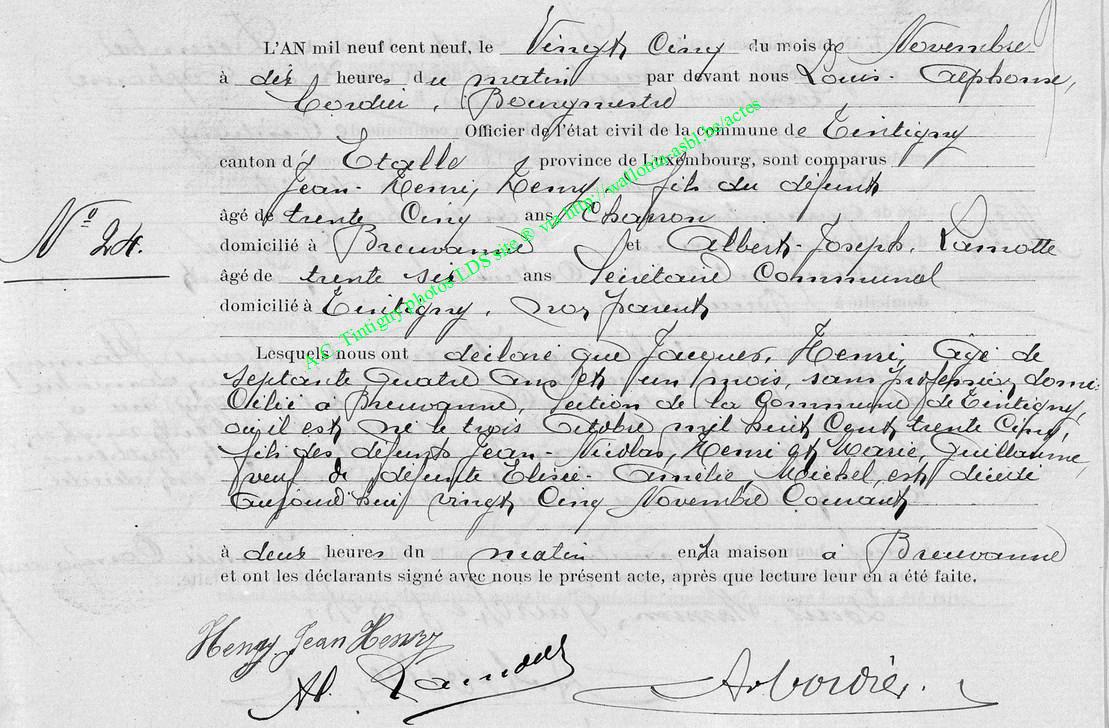 L'AN mil neuf cent neuf, le Vingt Cinq du mois de Novembre
à dix heures du matin par devant nous Louis-Alphonse,
Cordier, Bourgmestre
Officier de l'état civil de la commune de Tintigny
canton d' Etalle province de Luxembourg, sont comparus
Jean-Henri, Henry, fils du défunt
âgé de trente Cinq ans, Charron
N° 24.
domicilié à Breuvanne et Albert-Joseph, Lamotte
âgé de trente six ans Secrétaire Communal
domicilié à Tintigny, non parent
Lesquels nous ont déclaré que Jacques, Henri, âgé de
septante quatre ans et un mois, sans profession, domi-
cilié à Breuvanne, Section de la Commune de Tintigny,
où il est né le trois Octobre mil huit Cent trente Cinq,
fils des défunts Jean-Nicolas, Henri et Marie, Guillaume,
veuf de défunte Elisée-Amélie, Michel, est décédé
aujourd'hui vingt Cinq Novembre Courant
à deux heures du matin en la maison à Breuvanne
et ont les déclarants signé avec nous le présent acte, après que lecture leur en a été faite.
Henry Jean Henry
A. Cordier.
A.C. Tintigny photos LDS site ® via http://wallonia-asbl.be/actes